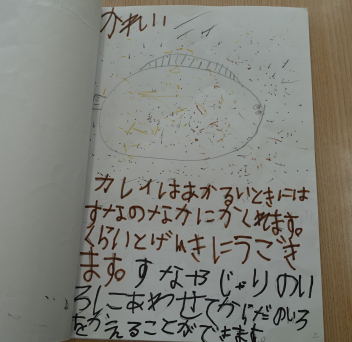 かれい
カレイはあかるいときには
すなのなかにかくれます。
くらいとげんきにうごき
ます。すなやじゃりのい
ろにあわせてからだのいろ
をかえることができます。